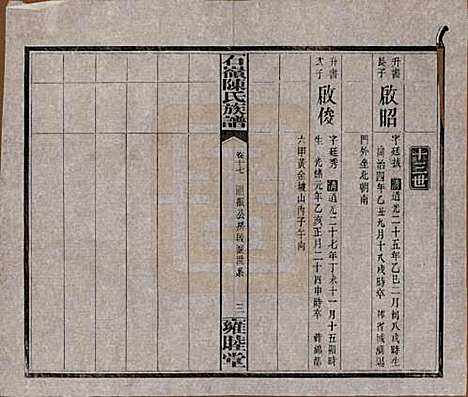 十三世
升書
長子
啟昭
字廷振 清道光二十五年乙巳二月初八戌時生
同治四年乙丑九月十八戌時卒 葬省城廣濟
門外坐北朝南
升書
次子
啟俊
字廷秀 清道光二十七年丁未十一月十五顯時
生 光緒元年乙亥正月二十四申時卒 葬錫
六甲黃金墟山丙子午向
石嶺陳氏族譜
卷十七
公房
世系
三
雍睦堂